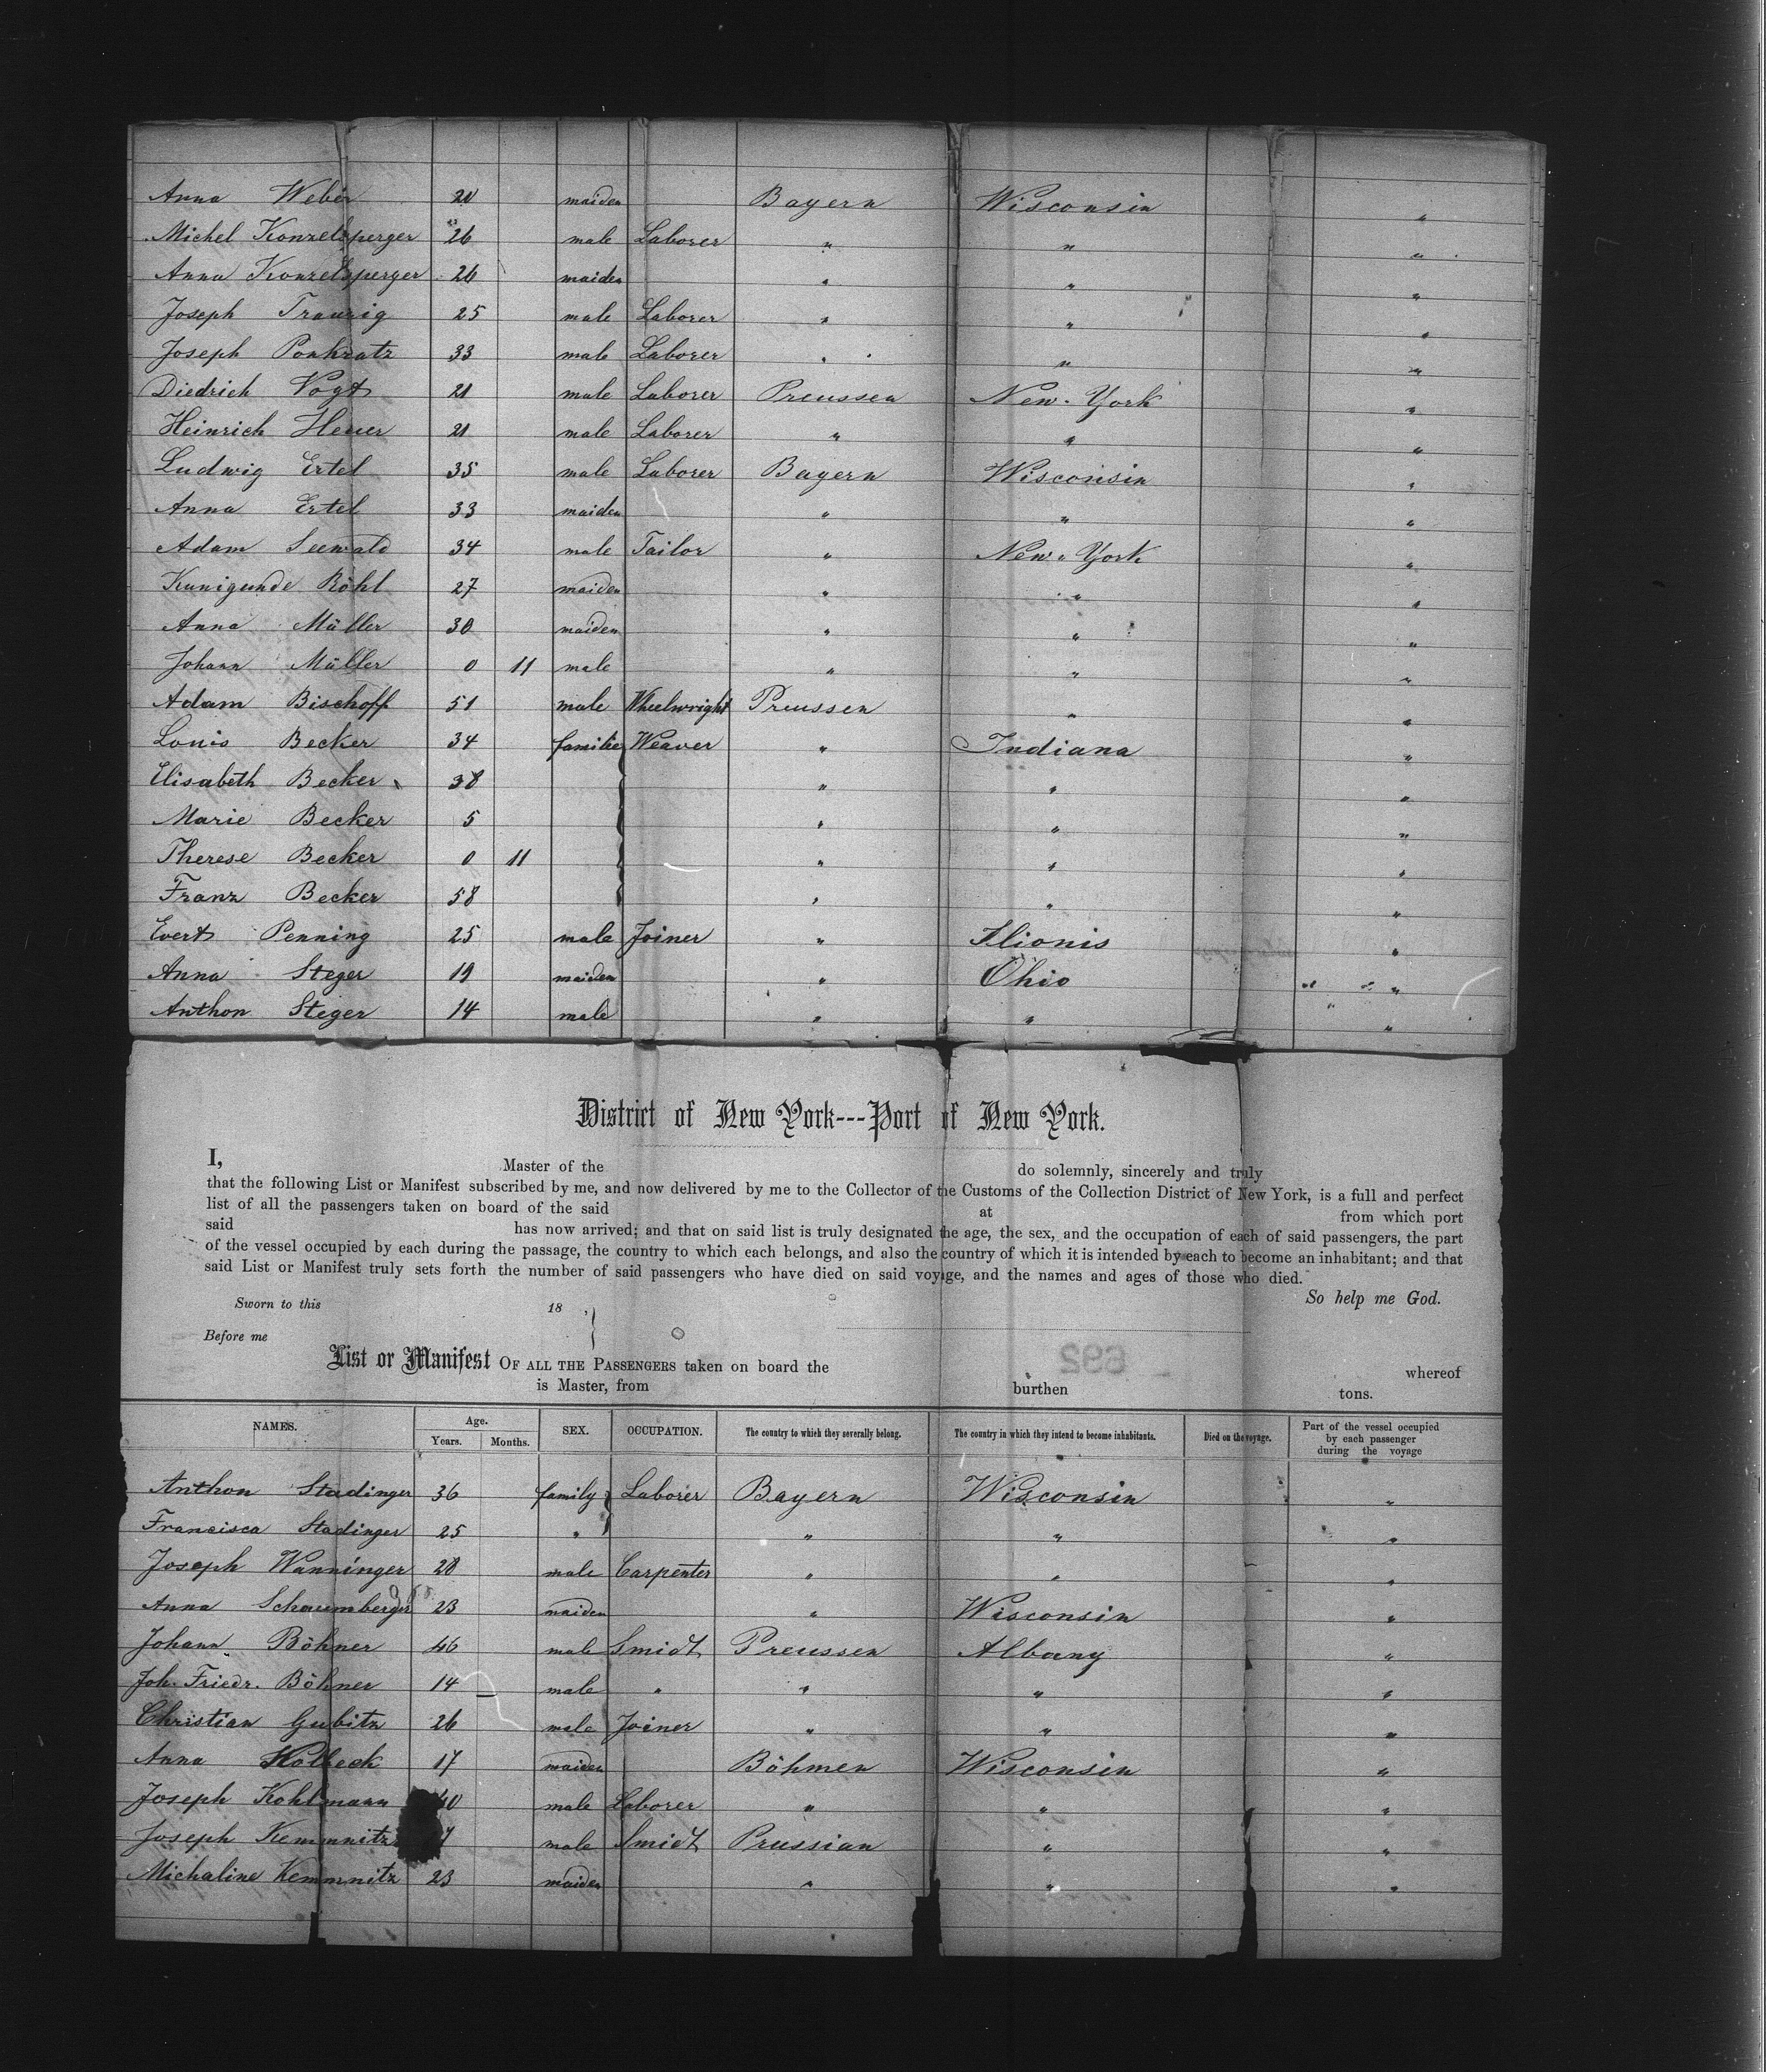 Anna Weber 20 maiden Bayern Wisconsin "
Michel Konzelsperger 26 male Laborer " " "
Anna Konzelsperger 26 maiden " " "
Joseph Traurig 25 male Laborer " " "
Joseph Ponkratz 33 male Laborer " " "
Diedrich Vogt 21 male Laborer Preussen New-York "
Heinrich Heuer 21 male Laborer " " "
Ludwig Ertel 35 male Laborer Bayern Wisconsin "
Anna Ertel 33 maiden " " "
Adam Seewald 34 male Tailor " New-York "
Kunigunde Röhl 27 maiden " " "
Anna Müller 30 maiden " " "
Johann Müller 0 11 male " " "
Adam Bischoff 51 male Wheelwright Preussen " "
Louis Becker 34 familie Weaver " Indiana "
Elisabeth Becker 38 " " "
Marie Becker 5 " " "
Therese Becker 0 11 " " "
Franz Becker 58 " " "
Evert Penning 25 male Joiner " Ilionis "
Anna Steger 19 maiden " Ohio "
Anthon Steger 14 male " " "
District of New York---Port of New York.
I, Master of the do solemnly, sincerely and truly
that the following List or Manifest subscribed by me, and now delivered by me to the Collector of the Customs of the Collection District of New York, is a full and perfect
list of all the passengers taken on board of the said at from which port
said has now arrived; and that on said list is truly designated the age, the sex, and the occupation of each of said passengers, the part
of the vessel occupied by each during the passage, the country to which each belongs, and also the country of which it is intended by each to become an inhabitant; and that
said List or Manifest truly sets forth the number of said passengers who have died on said voyage, and the names and ages of those who died.
So help me God.
Sworn to this 18 ,
Before me
List or Manifest OF ALL THE PASSENGERS taken on board the whereof
is Master, from burthen tons.
NAMES. Age. Years. Months. SEX. OCCUPATION. The country to which they severally belong. The country in which they intend to become inhabitants. Died on the voyage. Part of the vessel occupied by each passenger during the voyage
Anthon Stadinger 36 family Laborer Bayern Wisconsin "
Francisca Stadinger 25 " " " "
Joseph Wanninger 28 male Carpenter " " "
Anna Schaumberger 23 maiden " Wisconsin "
Johann Böhner 46 male Smidt Preussen Albany "
Joh. Friedr. Böhner 14 male " " " "
Christian Gubitz 26 male Joiner " " "
Anna Holbeck 17 maiden Böhmen Wisconsin "
Joseph Kohlmann 40 male Laborer " " "
Joseph Kemmnitz male Smidt Prussian " "
Michaline Kemmnitz 23 maiden " " "